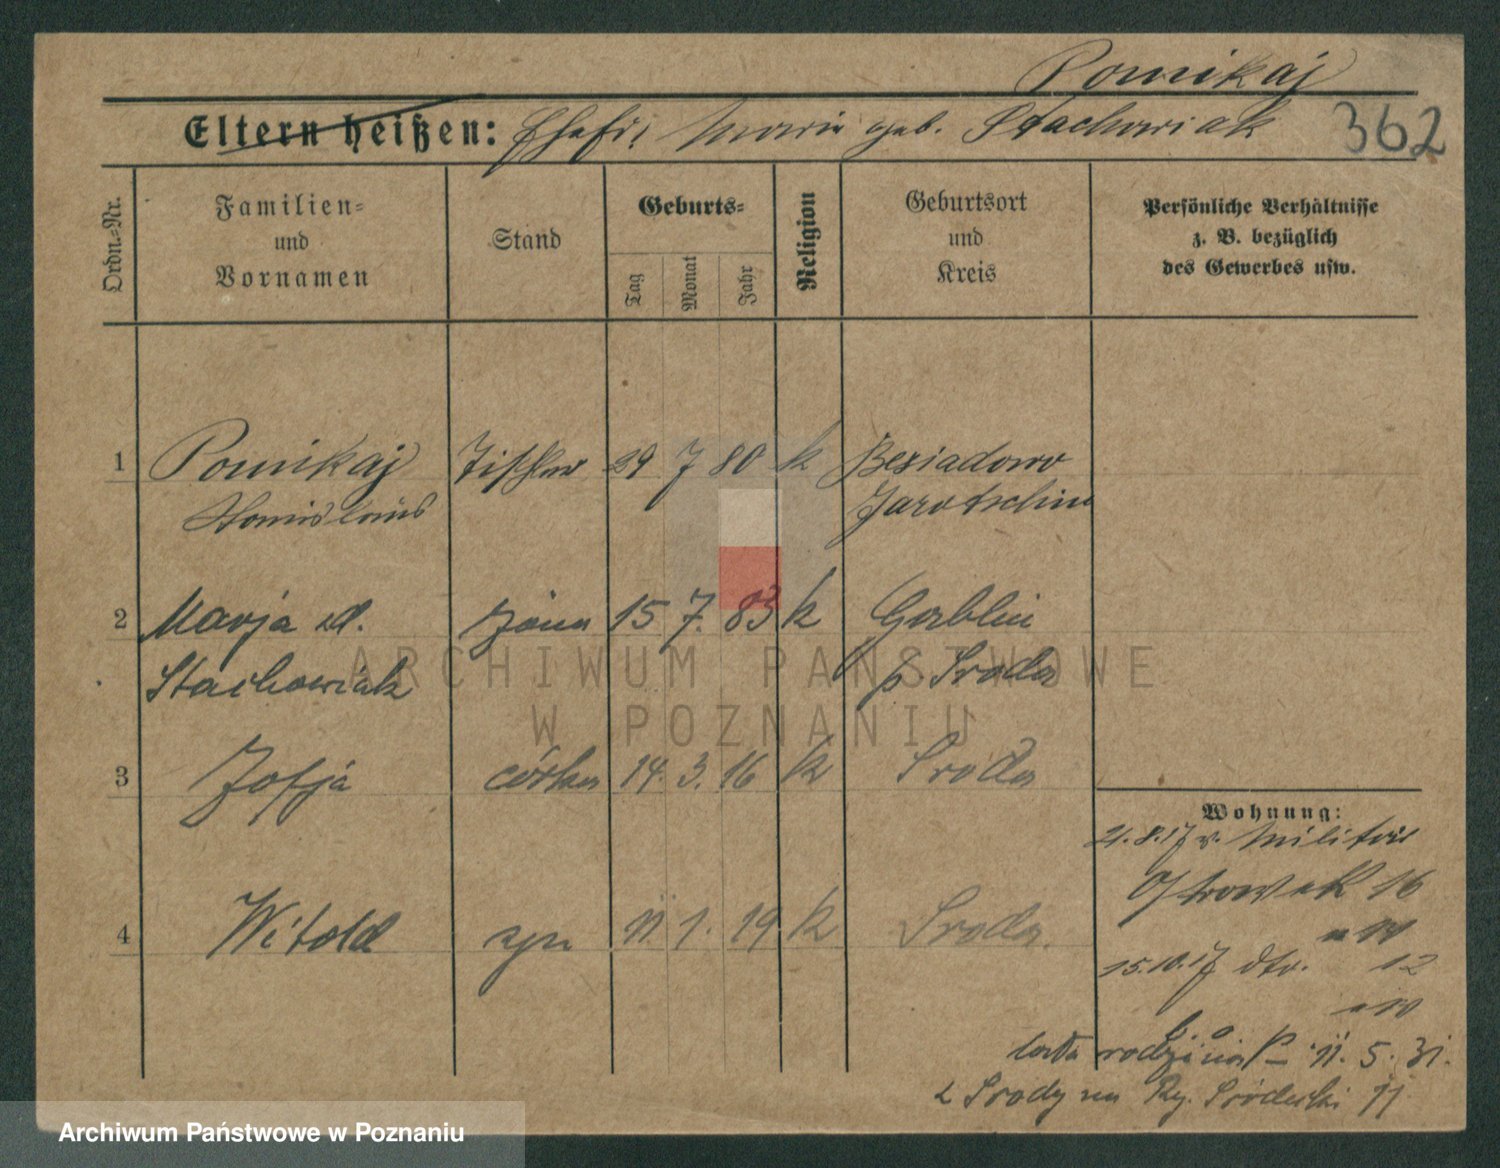 Pomikaj
Eltern heißen: Ehefr. Marie geb. Stachowiak 362
Ordn.-Nr.
Familien-
und
Vornamen
Stand
Geburts-
Tag
Monat
Jahr
Religion
Geburtsort
und
Kreis
Persönliche Verhältnisse
z. B. bezüglich
des Gewerbes usw.
1 Pomikaj Tischler 29 7 80 k Besiadowo
Stanislaus Jarotschin
2 Marja d. żona 15 7. 83 k
Stachowiak p. Sroda
3 Zofja córka 14. 3. 16 k Sroda
4 Witold syn 11. 1. 19 k Sroda.
Wohnung:
21.8.17 v. Militär
Ostrowek 16
15.10.17 dto. 12
cała rodzina 11. 5. 31.
z Srody na Ry. Śródecki 11
ARCHIWUM PAŃSTWOWE
W POZNANIU
Archiwum Państwowe w Poznaniu